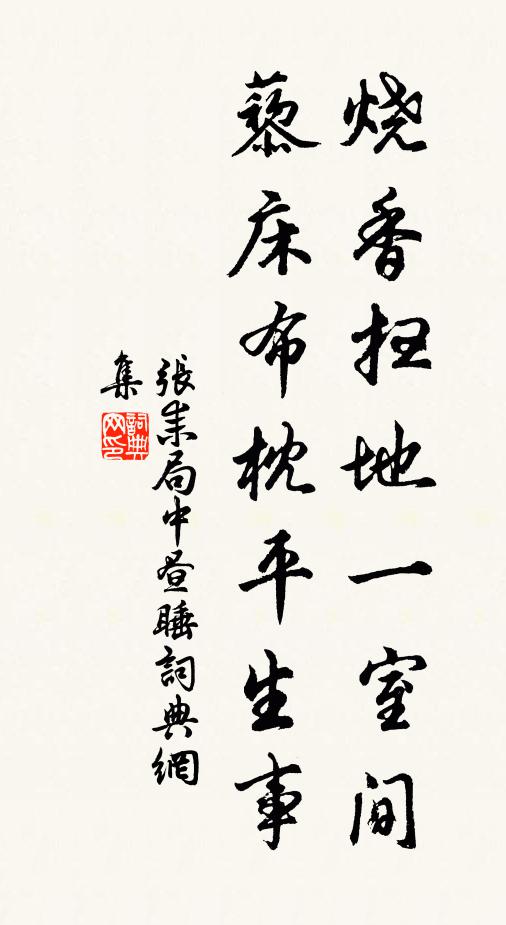 烧香扫地一室间
藜床布枕平生事
張耒局中昼睡詞典網
集
詞典
网